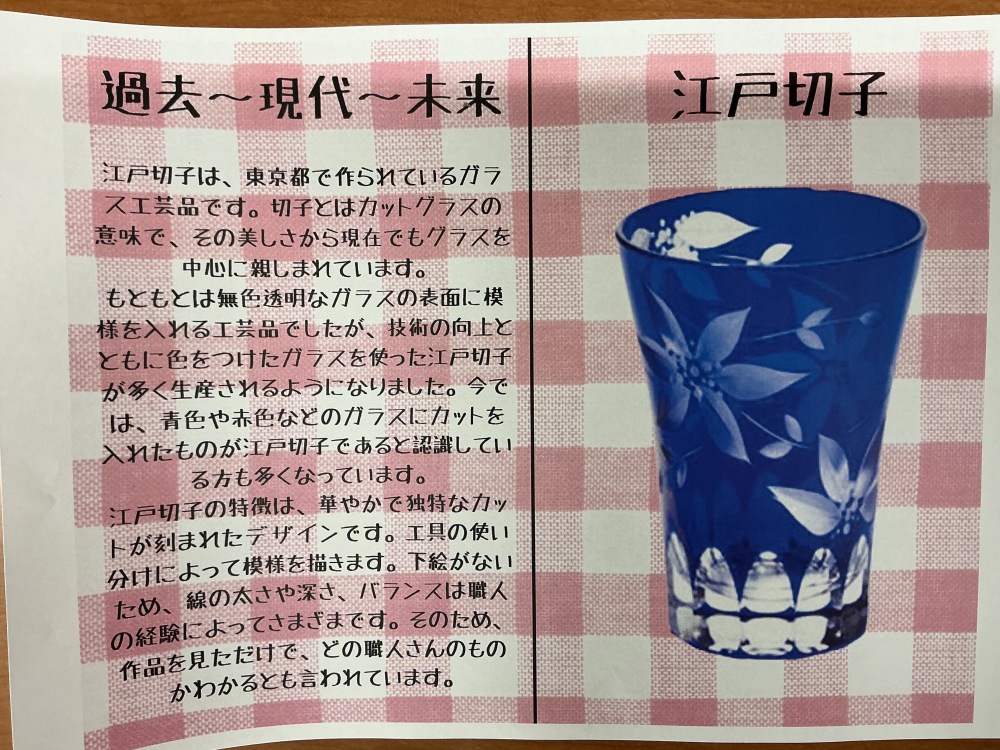 過去～現代～未来
江戸切子は、東京都で作られているガラ
ス工芸品です。切子とはカットグラスの
意味で、その美しさから現在でもグラスを
中心に親しまれています。
もともとは無色透明なガラスの表面に模
様を入れる工芸品でしたが、技術の向上と
ともに色をつけたガラスを使った江戸切子
が多く生産されるようになりました。今で
は、青色や赤色などのガラスにカットを
入れたものが江戸切子であると認識してい
る方も多くなっています。
江戸切子の特徴は、華やかで独特なカッ
トが刻まれたデザインです。工具の使い
分けによって模様を描きます。下絵がない
ため、線の太さや深さ、バランスは職人
の経験によってさまざまです。そのため、
作品を見ただけで、どの職人さんのもの
かわかるとも言われています。
江戸切子